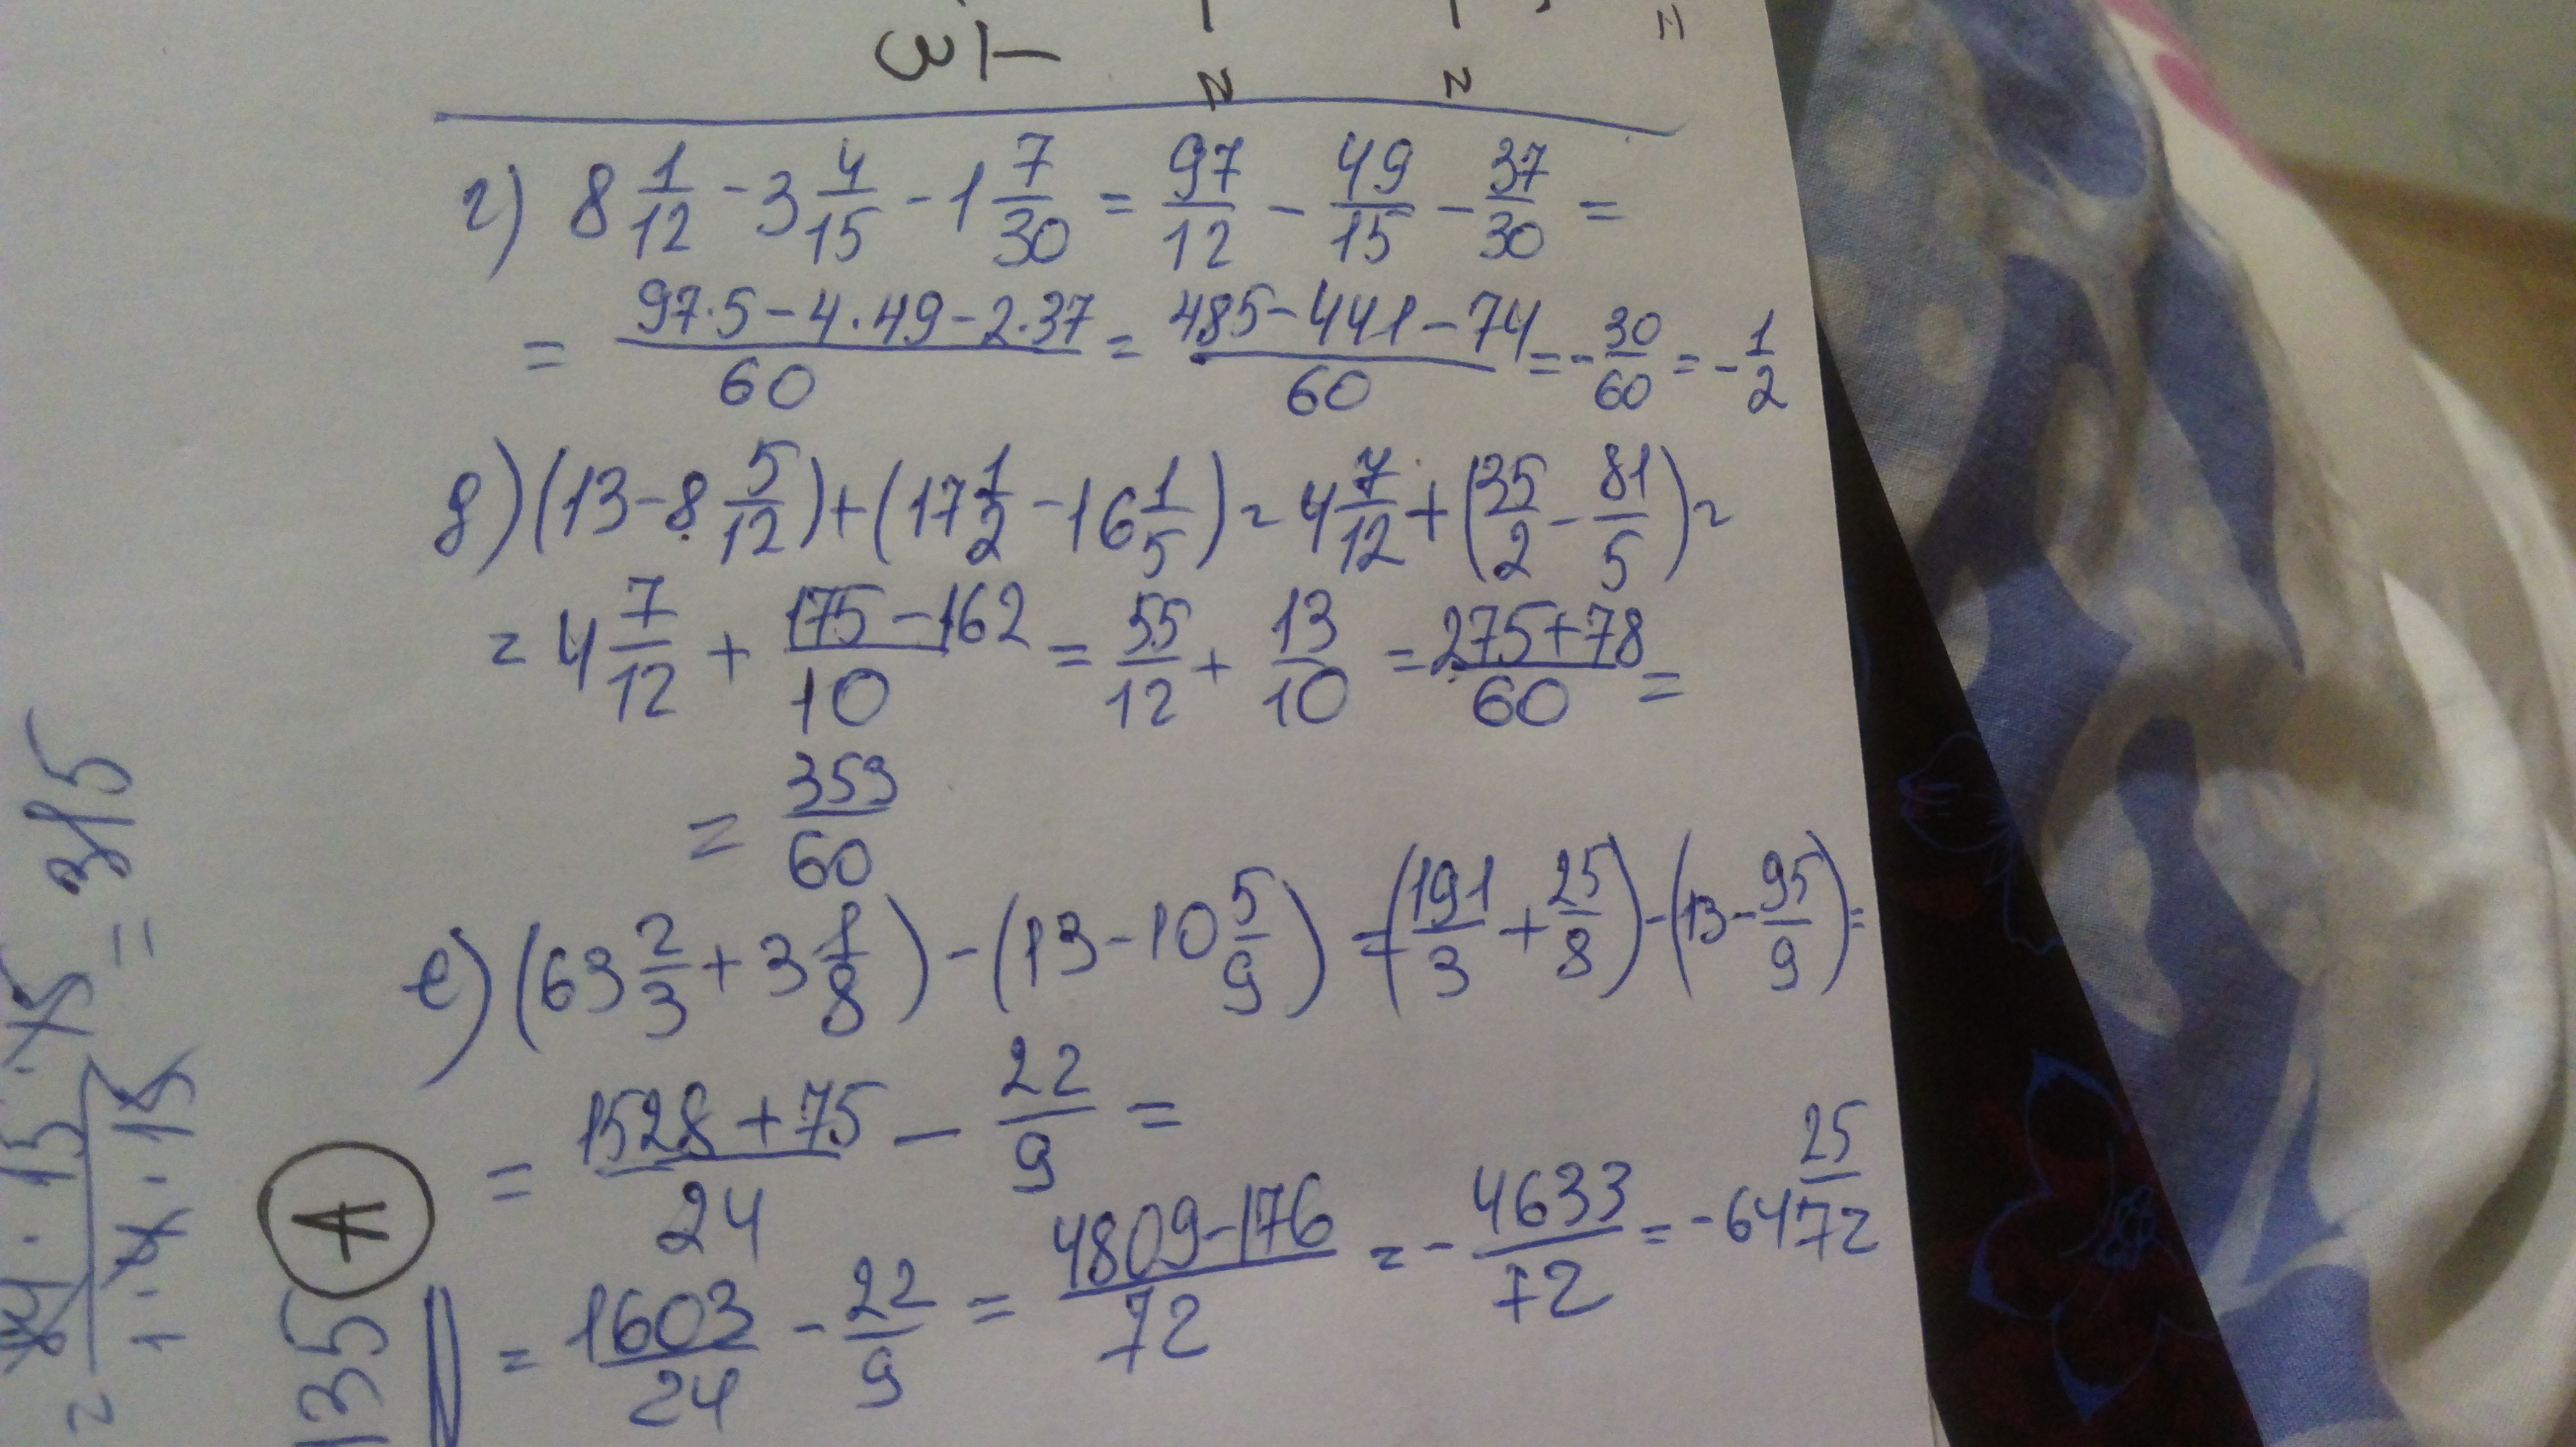 г) 8 1/12 - 3 4/15 - 1 7/30 = 97/12 - 49/15 - 37/30 =
= (97·5 - 4·49 - 2·37)/60 = (485 - 441 - 74)/60 = - 30/60 = - 1/2
д) (13 - 8 5/12) + (17 1/2 - 16 1/5) = 4 7/12 + (35/2 - 81/5) =
= 4 7/12 + (175 - 162)/10 = 55/12 + 13/10 = (275 + 78)/60 =
= 353/60
е) (63 2/3 + 3 1/8) - (13 - 10 5/9) = (191/3 + 25/8) - (13 - 95/9) =
= (1528 + 75)/24 - 22/9 =
= 1603/24 - 22/9 = (4809 - 176)/72 = - 4633/72 = - 64 25/72
= 315
135